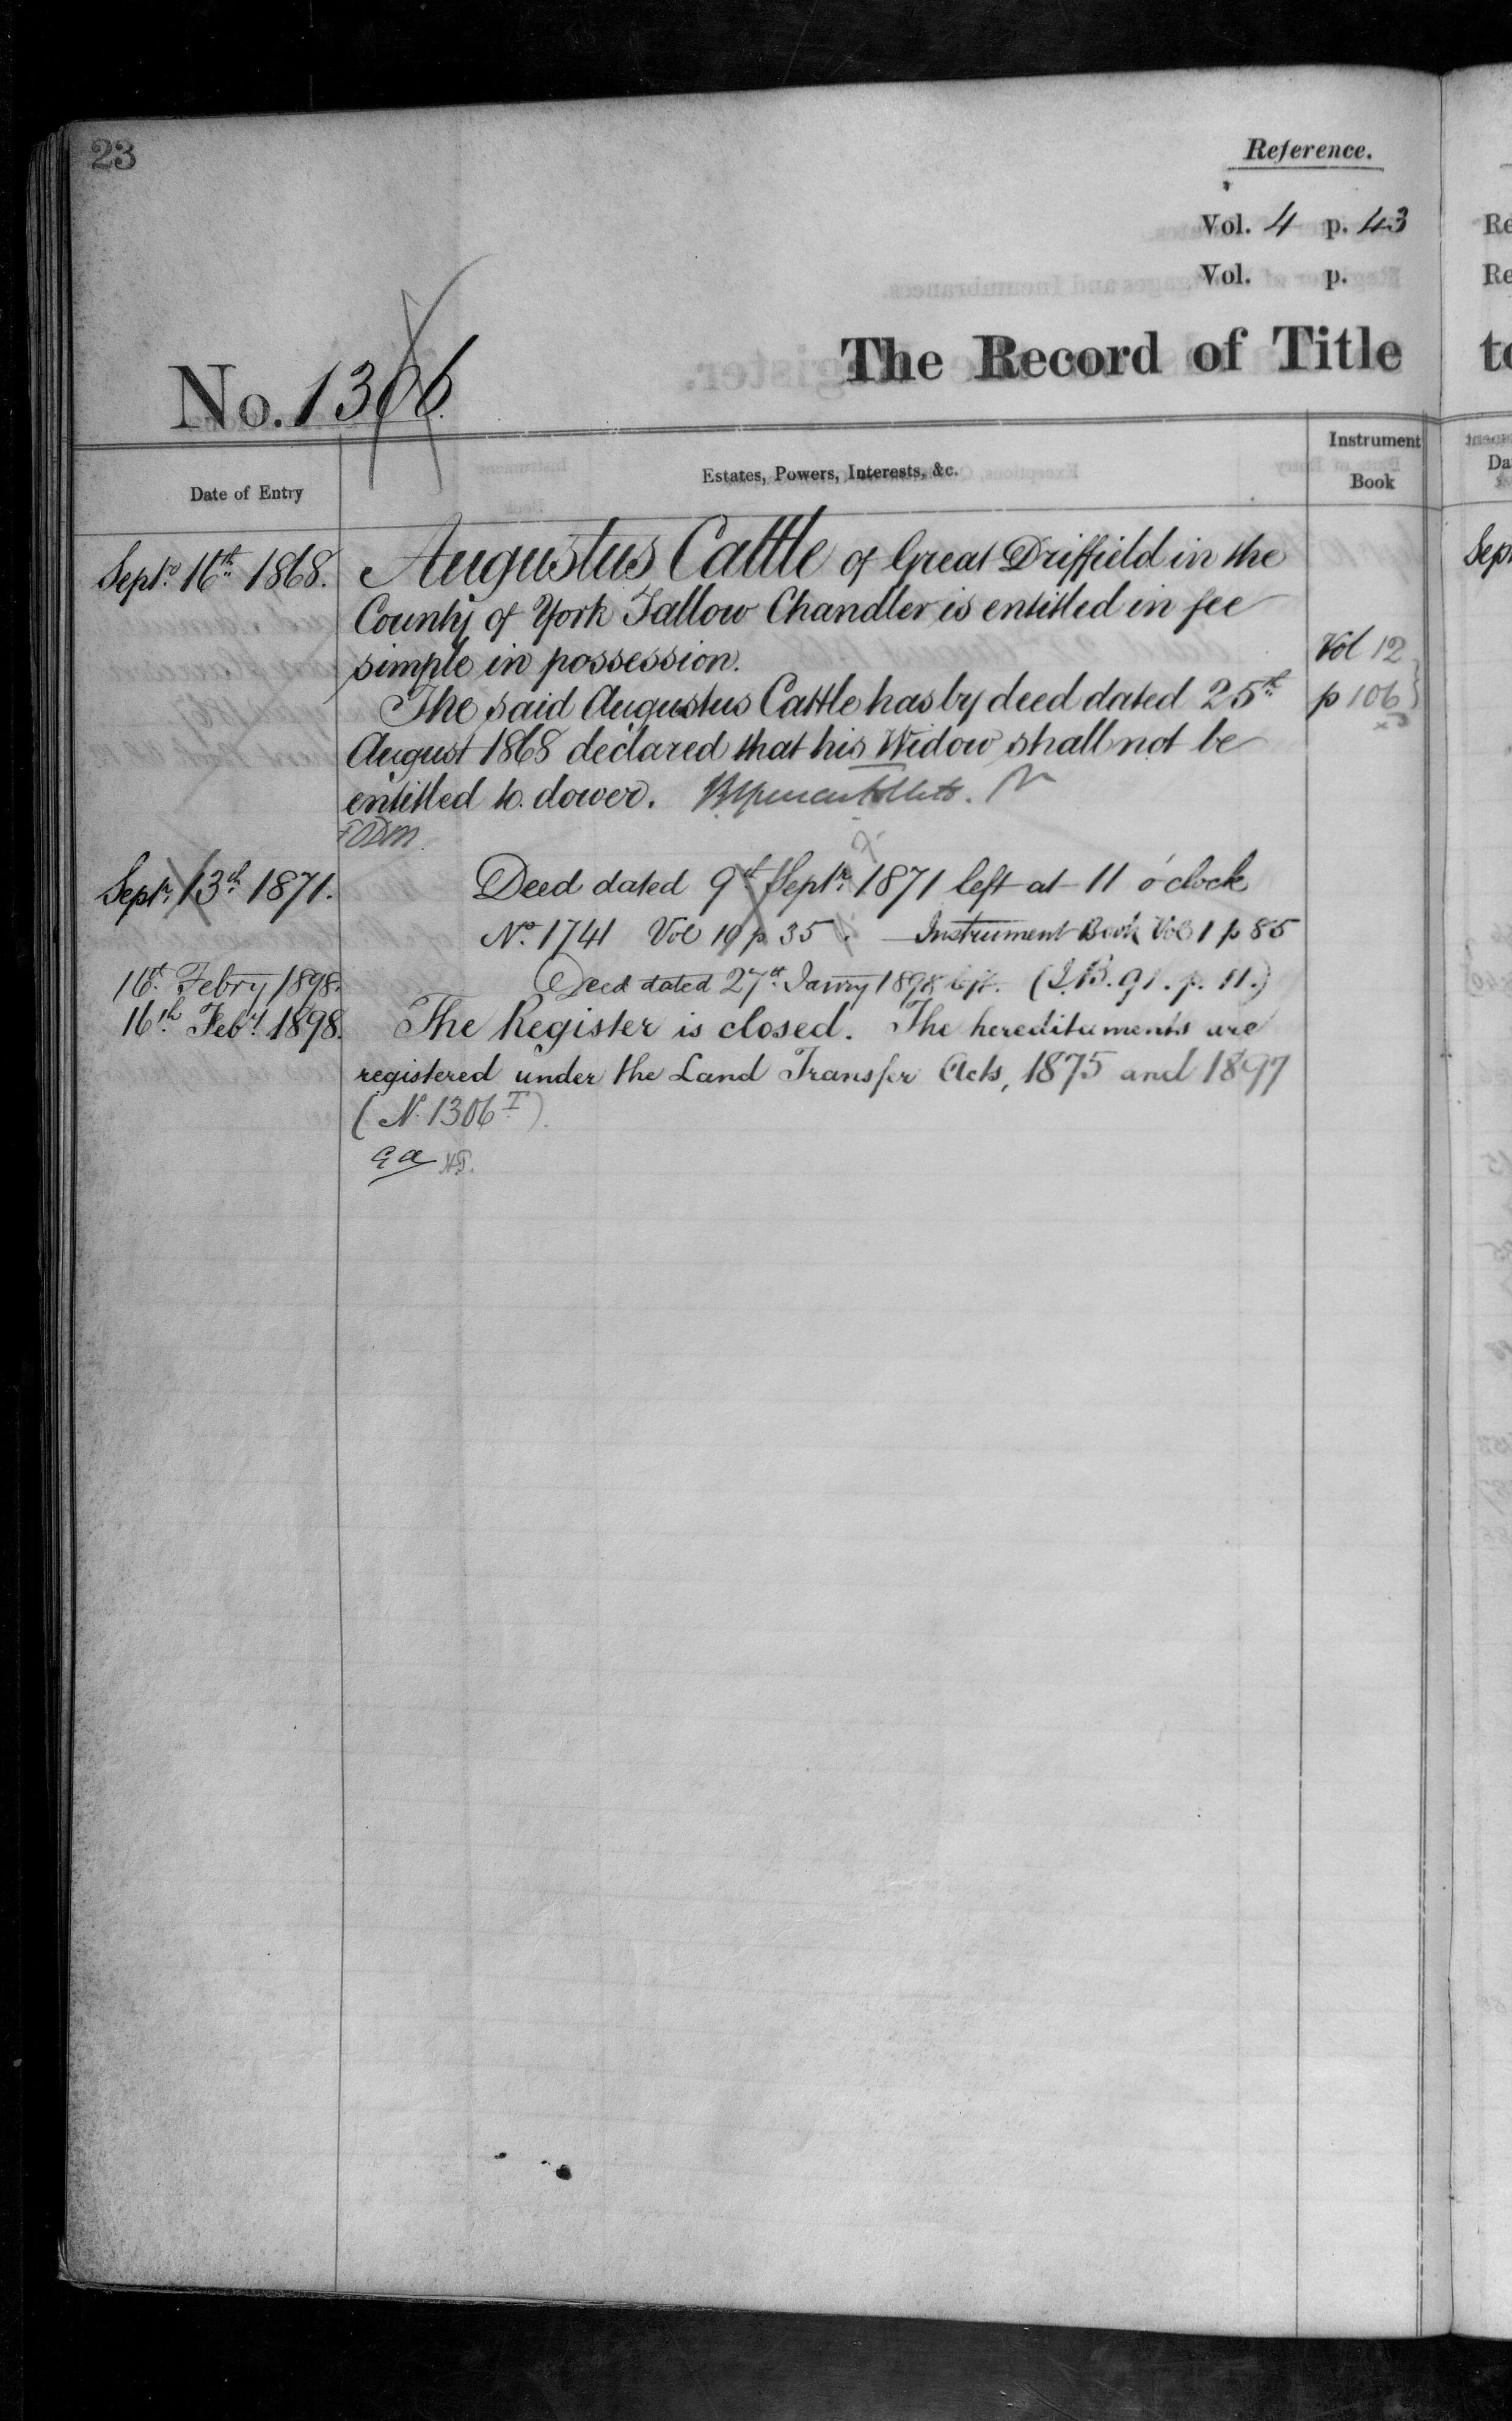 23
Reference.
Vol. 4 p. 43
Vol. p.
The Record of Title
No. 1306
Date of Entry
Estates, Powers, Interests, &c.
Instrument
Book
Septr. 16th 1868. Augustus Cattle of Great Driffield in the
County of York Tallow Chandler is entitled in fee
simple in possession.
Vol 12
The said Augustus Cattle has by deed dated 25th
p 106
August 1868 declared that his Widow shall not be
entitled to dower.
Septr. 13th 1871. Deed dated 9th Septr. 1871 left at 11 o'clock
No. 1741 Vol 19 p 35. Instrument Book Vol 1 p 85
16th Febry 1898. Deed dated 27th Janry 1898 left. (I.B. 91. p. 11.)
16th Feby. 1898. The Register is closed. The hereditaments are
registered under the Land Transfer Acts, 1875 and 1897
(N. 1306 I).
Re
Re
to
Da
Sep